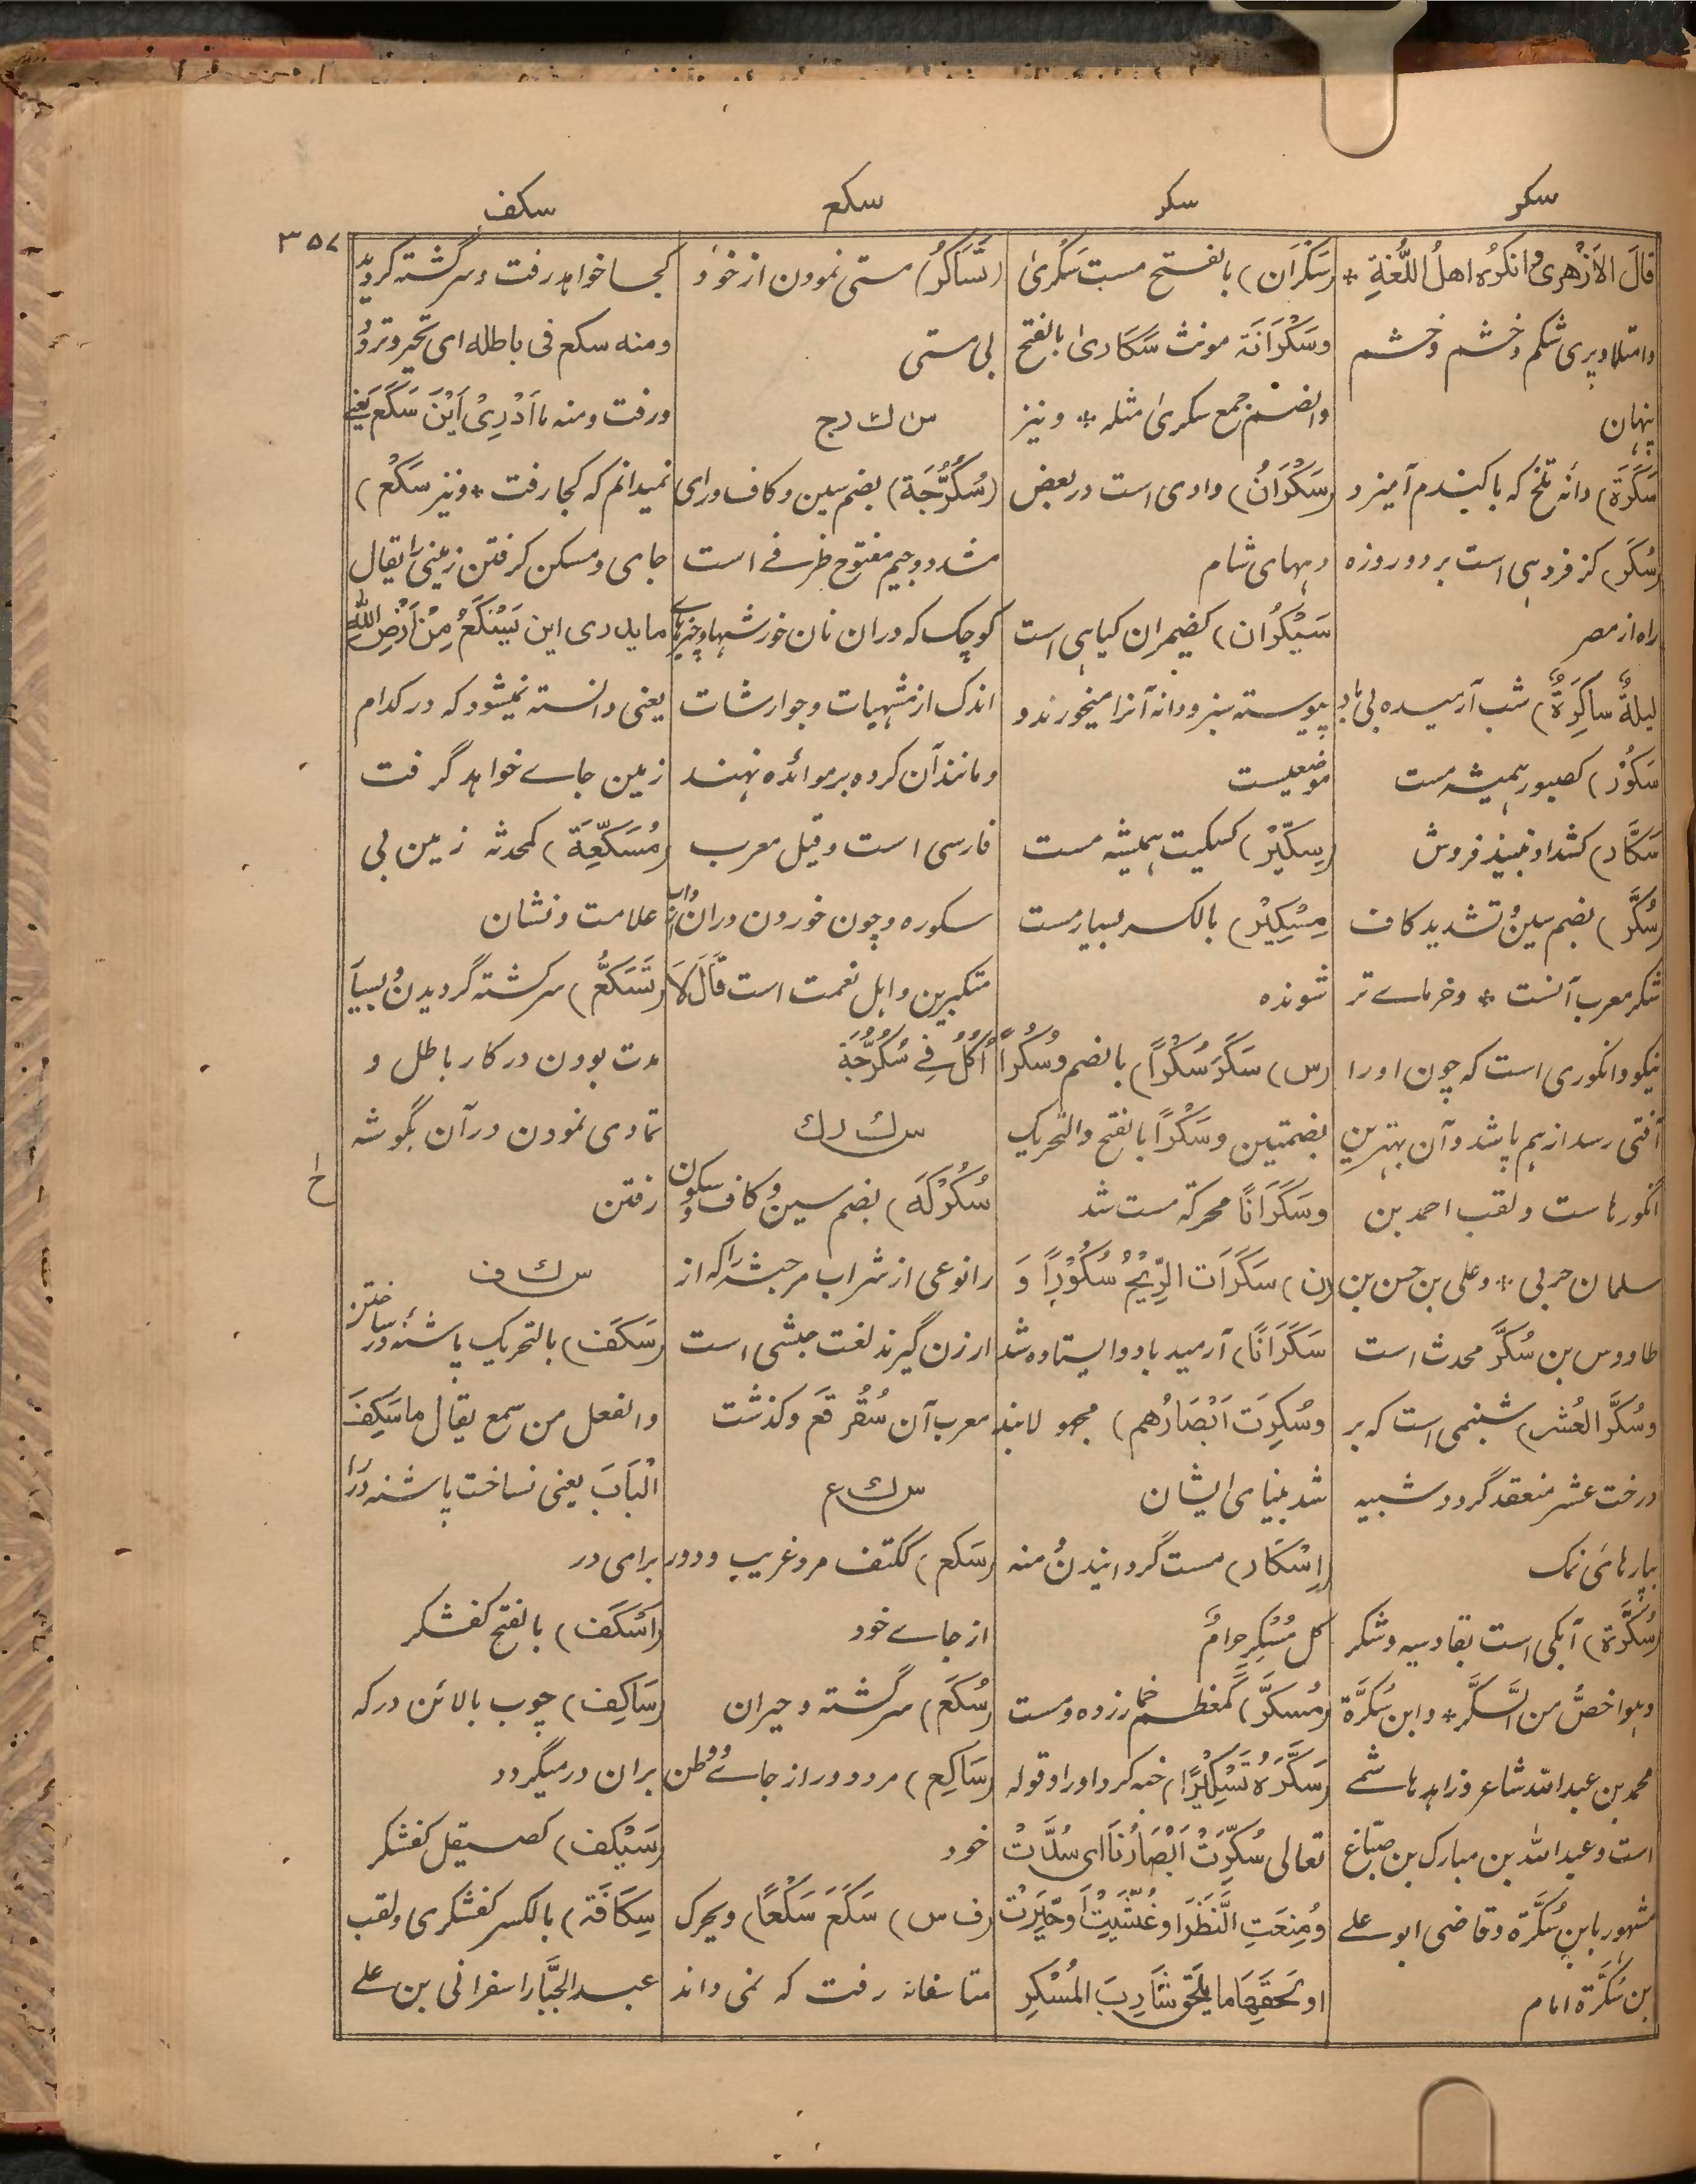 سکر
سکر
سکع
سکف
۳۵۷
قالَ الاَزْهرِیُّ وانکرُه اهلُ اللُّغةِ *
وامتلا و پری شکم و خشم و خشم
پنهان
سَکَرَة) دانهٔ تلخ که با گندم آمیزد
(سُکَر) کزفر دهی است بر دو روزه
راه از مصر
لیلةٌ ساکِرَةٌ) شب آرمیده بی باد
سَکُوْر) کصبور همیشه مست
سَکَّار) کشداد نبیذ فروش
(سُکَّر) بضم سین و تشدید کاف
شکر معرب آنست * و خرمای تر
نیکو و انگوری است که چون او را
آفتی رسد از هم پاشد و آن بهترین
انگورها ست و لقب احمد بن
سلمان حربی * و علی بن حسن بن
طاووس بن سُکَّر محدث است
وسُکَّر العُشَر) شبنمی است که بر
درخت عشر منعقد گردد شبیه
بپارهای نمک
(سُکَّرَة) آبکی است بقادسیه و شکر
وهو اخصُّ من السُّکَّر * وابن سُکَّرَة
محمد بن عبدالله شاعر و زاهد هاشمی
است و عبدالله بن مبارک بن صبّاغ
مشهور بابن سُکَّرَة و قاضی ابو علی
بن سُکَّرَة امام
(سَکْرَان) بالفتح مست سَکْریٰ
وسَکْرَانَة مونث سَکَاریٰ بالفتح
والضم جمع سکریٰ مثله * و نیز
(سَکْرَانُ) وادی است در بعض
دههای شام
سَیْکُرَان) کضیمران گیاهی است
پیوسته سبز و دانه آنرا میخورند و
موضعیست
(سِکِّیْر) کسکیت همیشه مست
مِسْکِیْر) بالکسر بسیار مست
شونده
(س) سَکَرَ سُکْرًا) بالضم و سُکُرًا
بضمتین و سَکْرًا بالفتح والتحریک
وسَکَرَانًا محرکة مست شد
(ن) سَکَرَات الرِّیْحُ سُکُوْرًا وَ
سَکَرَانًا) آرمید باد و ایستاده شد
وسُکِرَت اَبْصَارُهم) مجهولا بند
شد بینای ایشان
(اِسْکَار) مست گردانیدن و منه
کل مُسْکِرٍ حرامٌ
(مُسکَّر) کمعظم خمار زده و مست
(سَکَّرَهُ تَسْکِیْرًا) خبه کرد او را و قوله
تعالی سُکِّرَتْ اَبْصَارُنَا ای سُدَّتْ
ومُنِعَتِ النَّظَرَ اوغُشِّیَتْ اَوحُیِّرَتْ
او لَحِقَهَا ما یَلْحَقُ شَارِبَ المُسْکِرِ
(تَسَاکُر) مستی نمودن از خود
بی مستی
س ک ر ج
(سُکُرُّجَة) بضم سین و کاف و رای
مشدد و جیم مفتوح ظرفی است
کوچک که دران نان خورشها و چیزهای
اندک از مشهیات و جوارشات
و مانند آن کرده بر موائده نهند
فارسی است و قیل معرب
سکوره و چون خوردن دران داب
متکبرین و اهل نعمت است قَالَ لَا
اٰکُلُ فِی سُکُرُّجَةٍ
س ک ر ک
سُکُرْکَة) بضم سین و کاف و سکون
را نوعی از شراب مر حبشه را که از
ارزن گیرند لغت حبشی است
معرب آن سُقُرقَع و گذشت
س ک ع
(سَکِع) ککتف مرد غریب و دور
از جای خود
(سُکَع) سرگشته و حیران
(سَاکِع) مرد دور از جای و وطن
خود
(ف س) سَکَعَ سَکْعًا) و یحرک
متاسفانه رفت که نمی داند
کجا خواهد رفت و سرگشته گردید
ومنه سکع فی باطله ای تحیر و تردد
و رفت ومنه ما اَدْرِیْ اَیْنَ سَکَع یعنی
نمیدانم که کجا رفت * و نیز سَکْع)
جای و مسکن گرفتن زمینی را یقال
ما یدری این یَسْکَعُ مِنْ اَرْضِ اللهِ
یعنی دانسته نمیشود که در کدام
زمین جای خواهد گرفت
(مُسَکِّعَة) کمحدثه زمین بی
علامت و نشان
(تَسَکُّع) سرگشته گردیدن و بسیار
مدت بودن در کار باطل و
تمادی نمودن در آن بگوشه
رفتن
س ک ف
(سَکَف) بالتحریک پاشنهٔ در ساختن
والفعل من سمع یقال ما سَکِفَ
الْبَابَ یعنی نساخت پاشنه در را
برای در
(اَسْکَف) بالفتح کفشگر
(سَاکِف) چوب بالائن در که
بران در میگردد
(سَیْکَف) کصیقل کفشگر
سِکَافَة) بالکسر کفشگری و لقب
عبدالجبَّار اسفرانی بن علی